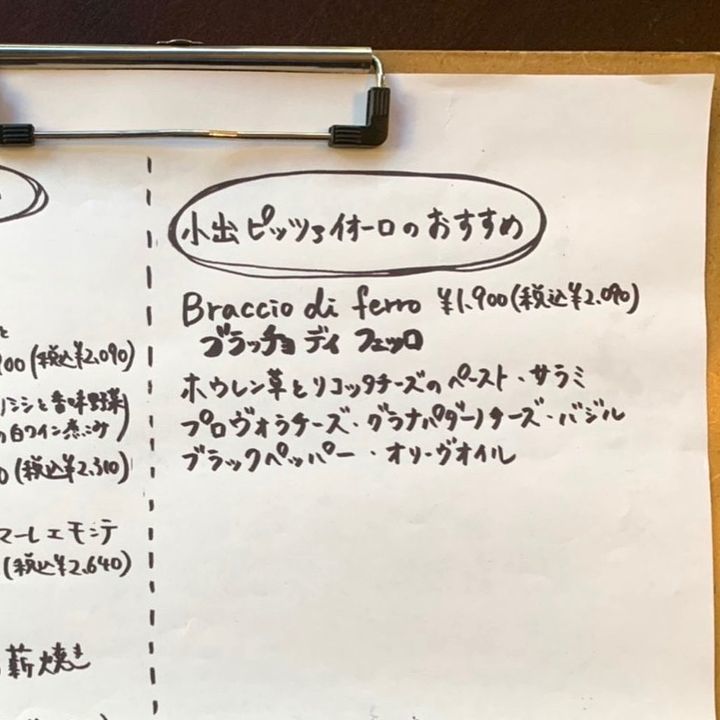 小出ピッツァイオーロのおすすめ
Braccio di ferro ¥1,900(税込¥2,090)
ブラッチョ ディ フェッロ
ホウレン草とリコッタチーズのペースト・サラミ
プロヴォラチーズ・グラナパダーノチーズ・バジル
ブラックペッパー・オリーヴオイル
と
900(税込¥2,090)
ノシシと香味野菜
の白ワイン煮込み)
0(税込¥2,310)
マーレエモンテ
(税込¥2,640)
薪焼き